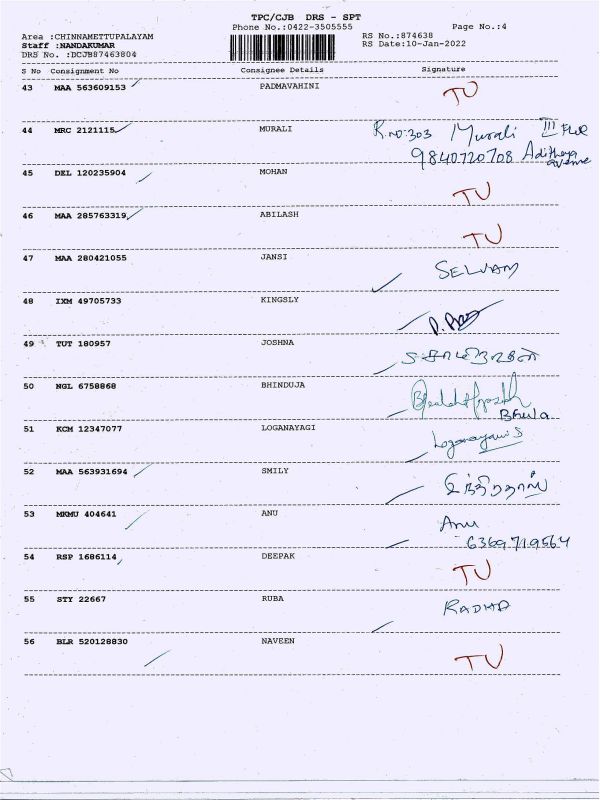 TPC/CJB DRS - SPT
Phone No.:0422-3505555 Page No.:4
Area :CHINNAMETTUPALAYAM RS No.:874638
Staff :NANDAKUMAR RS Date:10-Jan-2022
DRS No. :DCJB87463804
S No Consignment No Consignee Details Signature
43 MAA 563609153 PADMAVAHINI TU
44 MRC 2121115 MURALI R.NO:303 Murali III FLR
9840720708 Adithya avenue
45 DEL 120235904 MOHAN TU
46 MAA 285763319 ABILASH TU
47 MAA 280421055 JANSI SELVAM
48 IXM 49705733 KINGSLY
49 TUT 180957 JOSHNA
50 NGL 6758868 BHINDUJA
51 KCM 12347077 LOGANAYAGI Loganayagi S
52 MAA 563931694 SMILY
53 MKMU 404641 ANU Anu
6369719564
54 RSP 1686114 DEEPAK TU
55 STY 22667 RUBA RADHA
56 BLR 520128830 NAVEEN TU